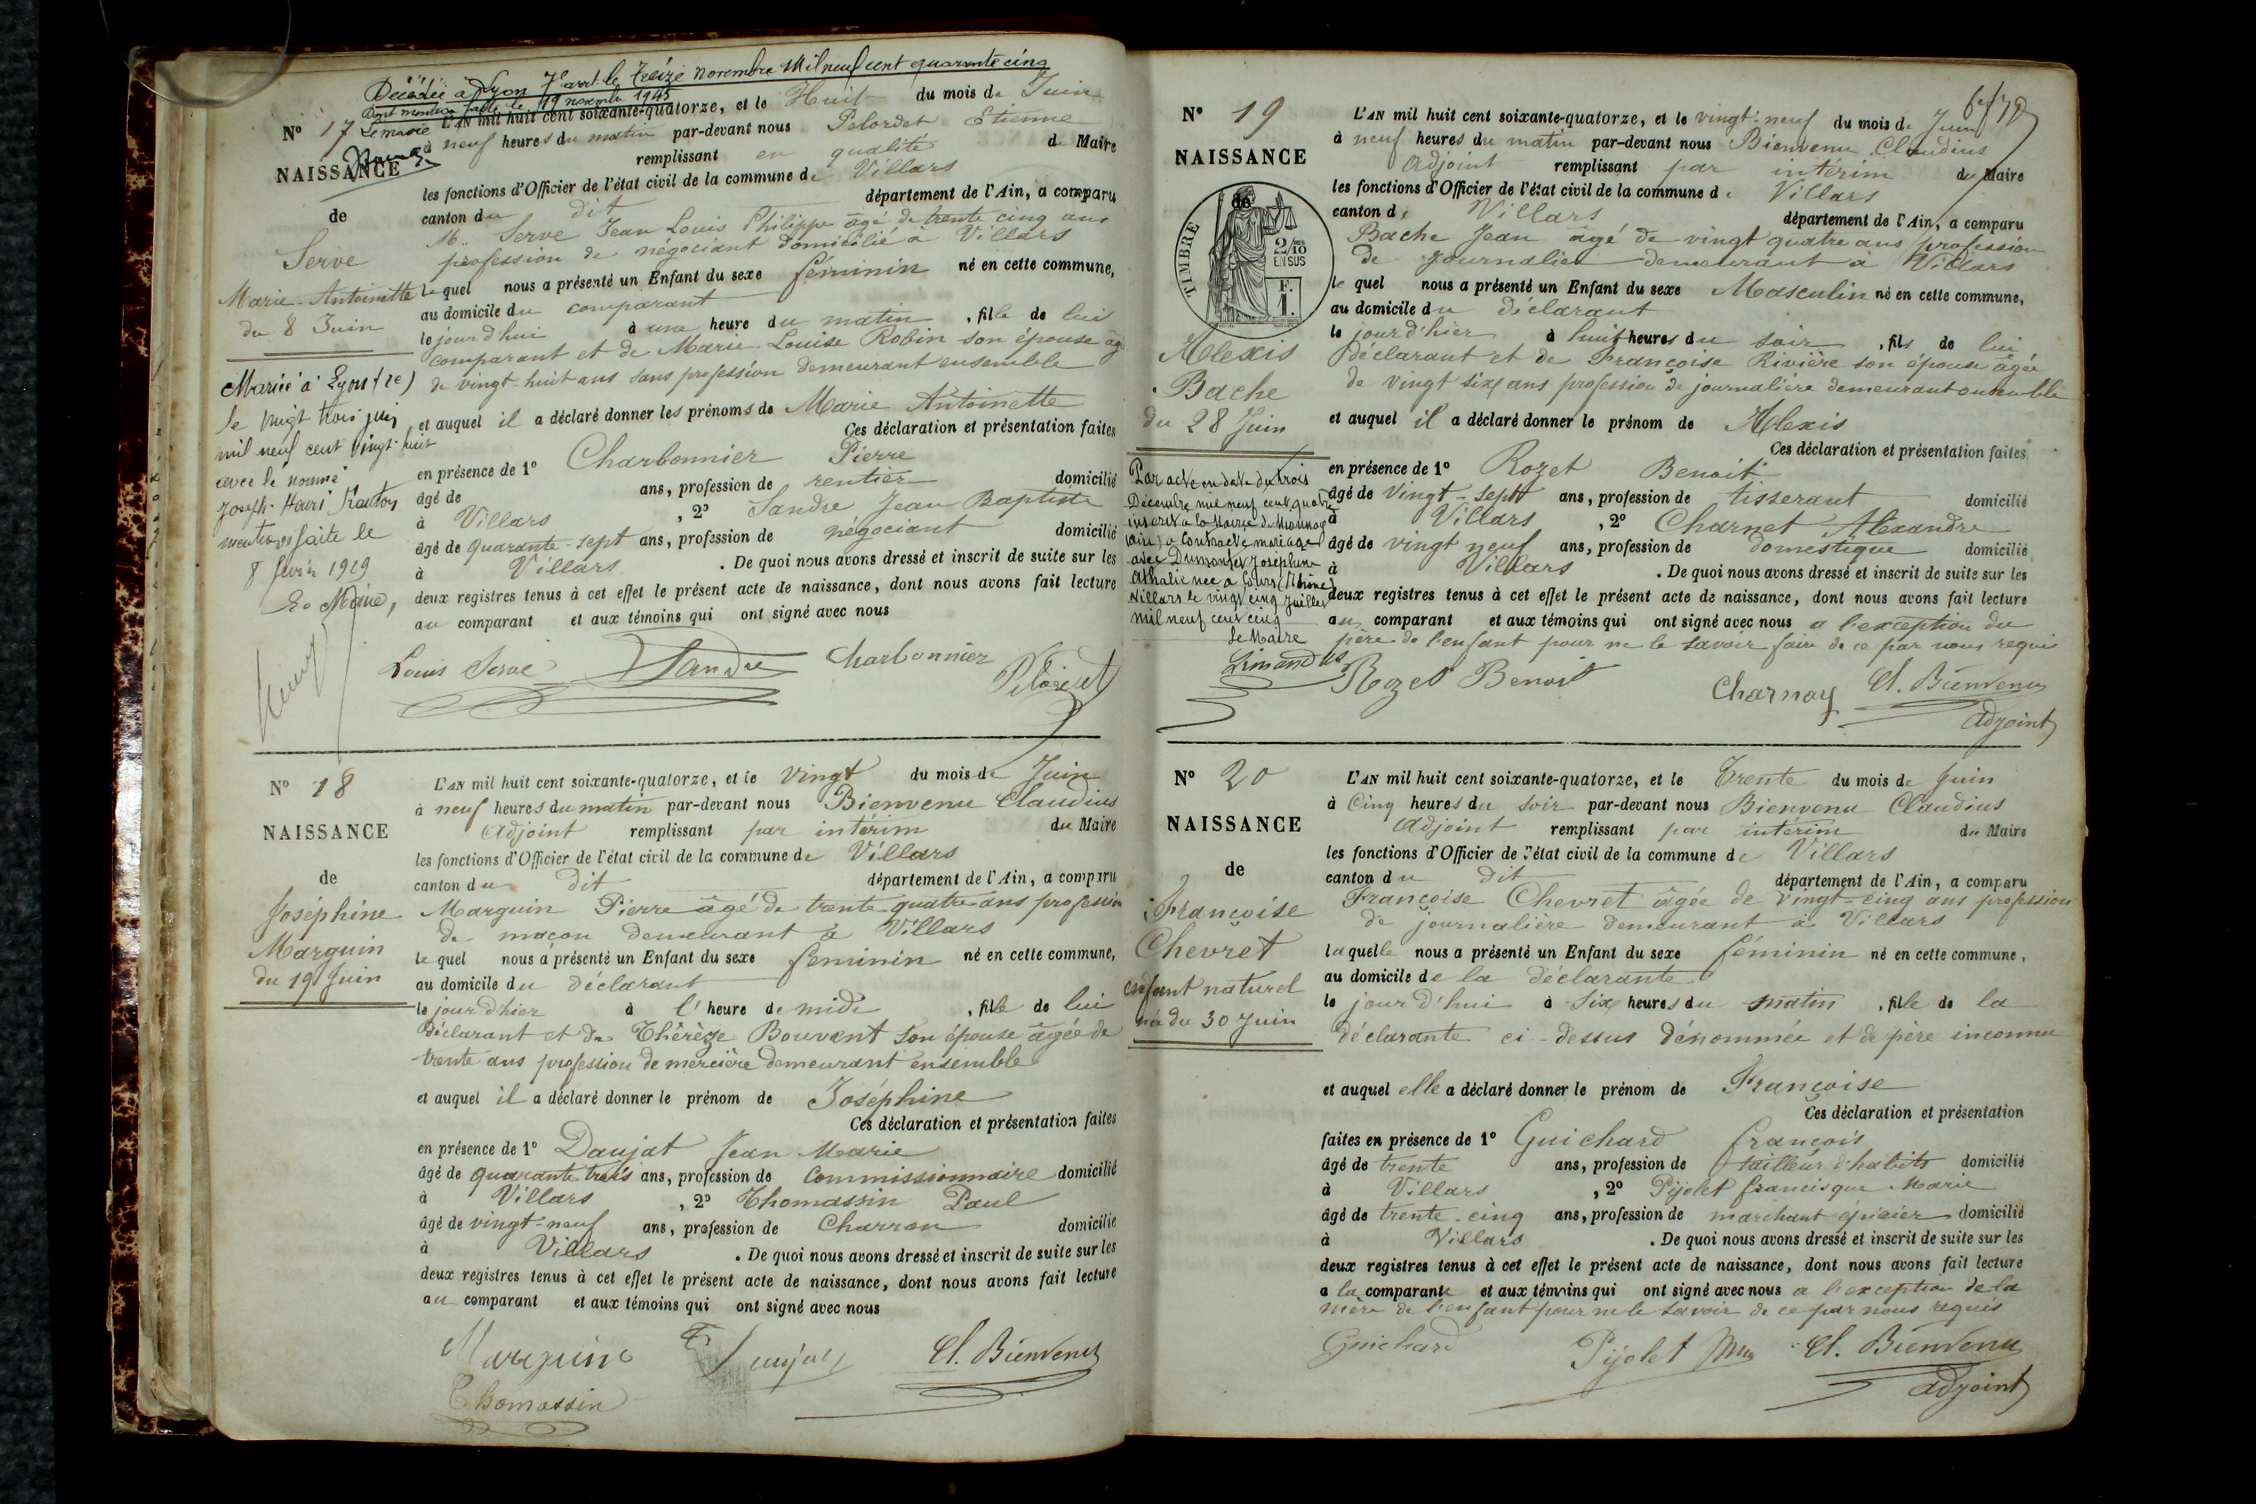 Décédée à Lyon 7e arrt le treize novembre Mil neuf cent quarante cinq
Dont mention faite le 19 novembre 1945
Le maire
N° 17
NAISSANCE
de
Serve
Marie-Antoinette
du 8 Juin
Mariée à Lyon (2e)
le vingt trois juin
mil neuf cent vingt huit
avec le nommé
Joseph Henri
mention faite le
8 1929
Le Maire,
L'AN mil huit cent soixante-quatorze, et le Huit du mois de Juin
à neuf heures du matin par-devant nous Pelordet Etienne
remplissant en qualité de Maire
les fonctions d'Officier de l'état civil de la commune de Villars
canton du dit département de l'Ain, a comparu
M. Serve Jean Louis Philippe âgé de trente cinq ans
profession de négociant domicilié à Villars
lequel nous a présenté un Enfant du sexe féminin né en cette commune,
au domicile du comparant
le jourd'hui à une heure du matin, fille de lui
comparant et de Marie Louise Robin son épouse âg
de vingt-huit ans sans profession demeurant ensemble
et auquel il a déclaré donner les prénoms de Marie Antoinette
Ces déclaration et présentation faites
en présence de 1° Charbonnier Pierre
âgé de ans, profession de rentier domicilié
à Villars, 2° Sandre Jean Baptiste
âgé de quarante-sept ans, profession de négociant domicilié
à Villars. De quoi nous avons dressé et inscrit de suite sur les
deux registres tenus à cet effet le présent acte de naissance, dont nous avons fait lecture
au comparant et aux témoins qui ont signé avec nous
Louis Serve Sandre Charbonnier Pelordet
N° 18
NAISSANCE
de
Joséphine
Marguin
du 19 Juin
L'AN mil huit cent soixante-quatorze, et le vingt du mois de Juin
à neuf heures du matin par-devant nous Bienvenu Claudius
Adjoint remplissant par intérim du Maire
les fonctions d'Officier de l'état civil de la commune de Villars
canton du dit département de l'Ain, a comparu
Marguin Pierre âgé de trente-quatre ans profession
de maçon demeurant à Villars
lequel nous a présenté un Enfant du sexe féminin né en cette commune,
au domicile du déclarant
le jourd'hier à l'heure de midi, fille de lui
déclarant et de Thérèze Bouvent son épouse âgée de
trente ans profession de mercière demeurant ensemble
et auquel il a déclaré donner le prénom de Joséphine
Ces déclaration et présentation faites
en présence de 1° Daujat Jean Marie
âgé de quarante trois ans, profession de Commissionnaire domicilié
à Villars, 2° Thomassin Paul
âgé de vingt-neuf ans, profession de Charron domicilié
à Villars. De quoi nous avons dressé et inscrit de suite sur les
deux registres tenus à cet effet le présent acte de naissance, dont nous avons fait lecture
au comparant et aux témoins qui ont signé avec nous
Marguin Daujat Cl. Bienvenu
Thomassin
N° 19
NAISSANCE
de
TIMBRE
2/10 EN SUS
F. 1.
Alexis
Bache
du 28 Juin
Par acte en date du trois
Décembre mil neuf cent quatre
inscrit à la Mairie de Mionnay
(ain) a contracté mariage
avec Josephine
Athalie née à Cours (Rhône)
Villars le vingt cinq Juillet
mil neuf cent cinq
Le Maire
L'AN mil huit cent soixante-quatorze, et le vingt-neuf du mois de Juin
à neuf heures du matin par-devant nous Bienvenu Claudius
Adjoint remplissant par intérim du Maire
les fonctions d'Officier de l'état civil de la commune de Villars
canton de Villars département de l'Ain, a comparu
Bache Jean âgé de vingt quatre ans profession
de journalier demeurant à Villars
lequel nous a présenté un Enfant du sexe Masculin né en cette commune,
au domicile du déclarant
le jourd'hier à huit heures du soir, fils de lui
déclarant et de Françoise Rivière son épouse âgée
de vingt six ans profession de journalière demeurant ensemble
et auquel il a déclaré donner le prénom de Alexis
Ces déclaration et présentation faites
en présence de 1° Rozet Benoit
âgé de vingt-sept ans, profession de tisserant domicilié
à Villars, 2° Charnet Alexandre
âgé de vingt neuf ans, profession de domestique domicilié
à Villars. De quoi nous avons dressé et inscrit de suite sur les
deux registres tenus à cet effet le présent acte de naissance, dont nous avons fait lecture
au comparant et aux témoins qui ont signé avec nous a l'exception du
père de l'enfant pour ne le savoir faire de ce par nous requis
Rozet Benoit Charnay Cl. Bienvenu
adjoint
N° 20
NAISSANCE
de
Françoise
Chevret
enfant naturel
née du 30 Juin
L'AN mil huit cent soixante-quatorze, et le Trente du mois de Juin
à Cinq heures du soir par-devant nous Bienvenu Claudius
Adjoint remplissant par intérim du Maire
les fonctions d'Officier de l'état civil de la commune de Villars
canton du dit département de l'Ain, a comparu
Françoise Chevret âgée de vingt-cinq ans profession
de journalière demeurant à Villars
laquelle nous a présenté un Enfant du sexe féminin né en cette commune,
au domicile de la déclarante
le jourd'hui à six heures du matin, fille de la
déclarante ci-dessus dénommée et de père inconnu
et auquel elle a déclaré donner le prénom de Françoise
Ces déclaration et présentation
faites en présence de 1° Guichard françois
âgé de trente ans, profession de tailleur d'habits domicilié
à Villars, 2° Pijolet francisque Marie
âgé de trente-cinq ans, profession de marchant épicier domicilié
à Villars. De quoi nous avons dressé et inscrit de suite sur les
deux registres tenus à cet effet le présent acte de naissance, dont nous avons fait lecture
a la comparante et aux témoins qui ont signé avec nous a l'exception de la
mère de l'enfant pour ne le savoir de ce par nous requis
Guichard Pijolet Cl. Bienvenu
adjoint